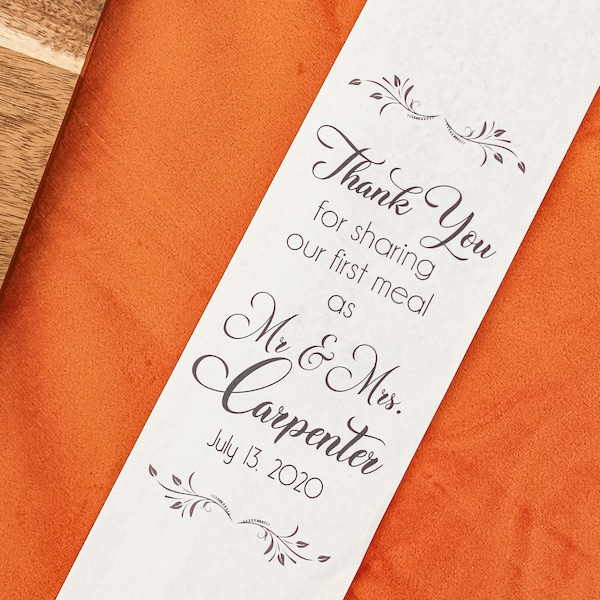 Thank You
for sharing
our first meal
as
Mr & Mrs.
Carpenter
July 13, 2020